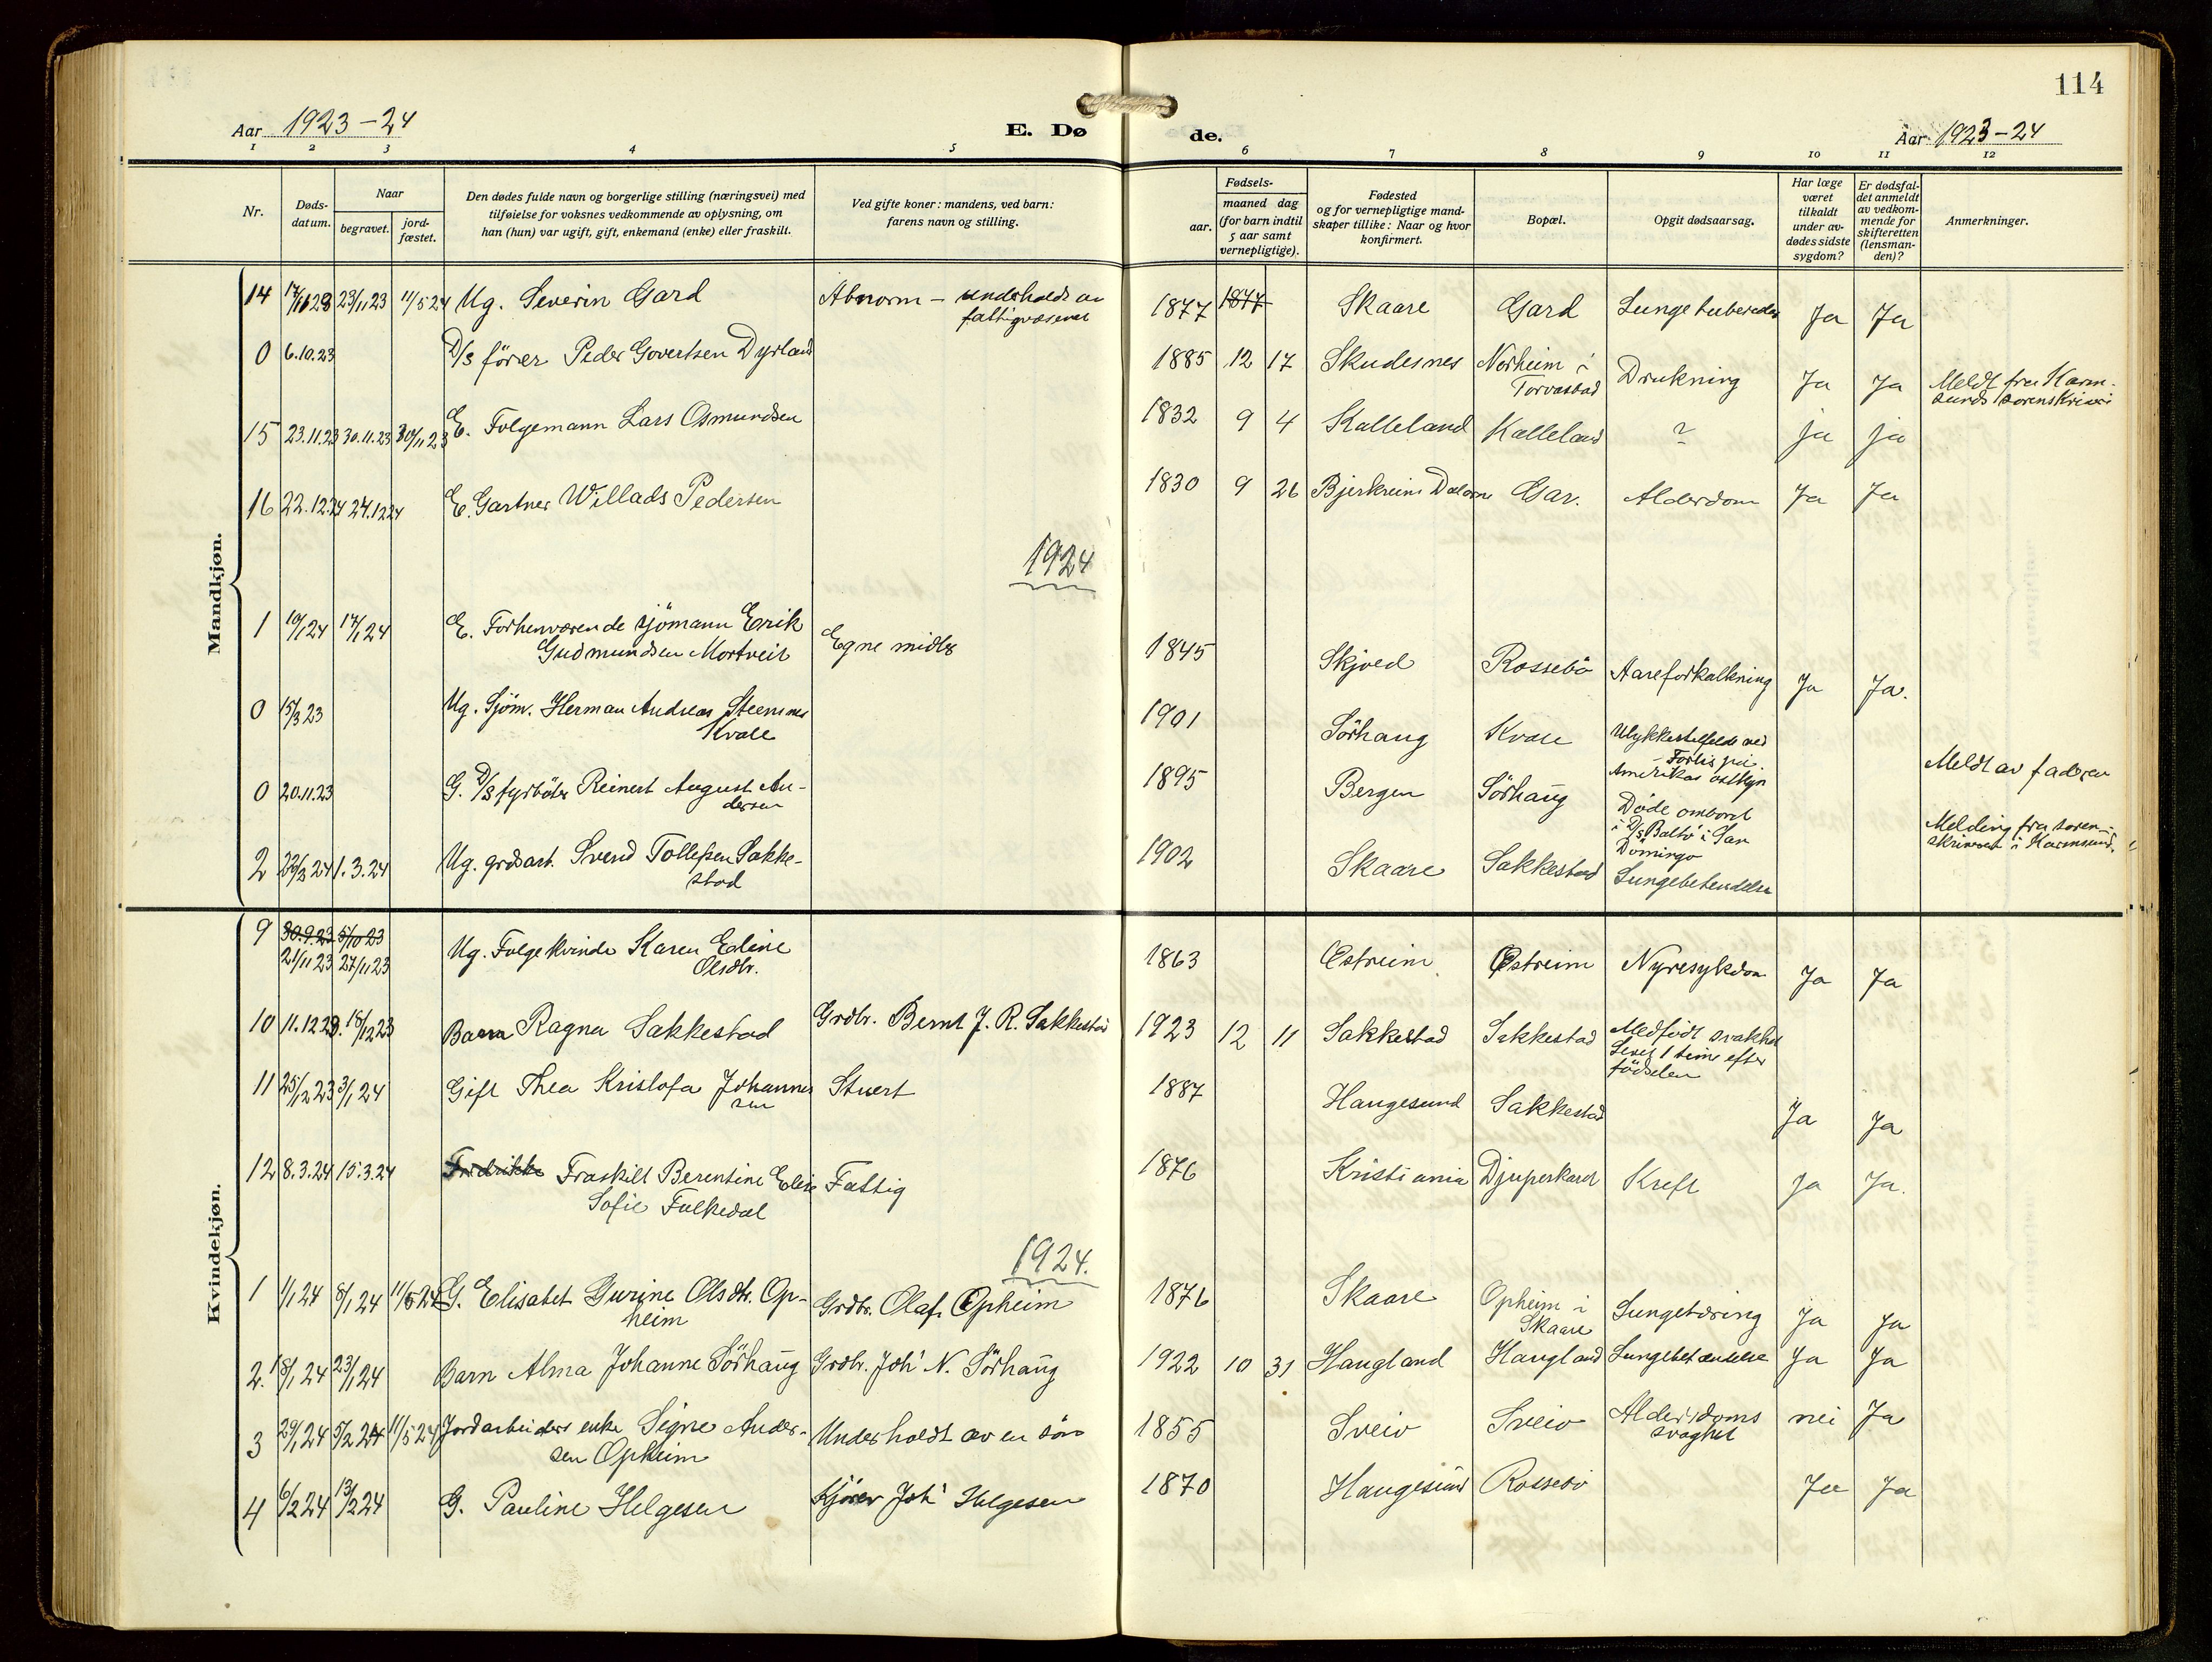 114
Aar 1923-24
E. Dø
de.
Aar 1923-24
1 2 3 4 5 6 7 8 9 10 11 12
Nr.
Døds-
datum.
Naar
begravet.
jord-
fæstet.
Den dødes fulde navn og borgerlige stilling (næringsvei) med
tilføielse for voksnes vedkommende av oplysning, om
han (hun) var ugift, gift, enkemand (enke) eller fraskilt.
Ved gifte koner: mandens, ved barn:
farens navn og stilling.
Fødsels-
aar.
maaned dag
(for barn indtil
5 aar samt
vernepligtige).
Fødested
og for vernepligtige mand-
skaper tillike: Naar og hvor
konfirmert.
Bopæl.
Opgit dødsaarsag.
Har læge
været
tilkaldt
under av-
dødes sidste
sygdom?
Er dødsfal-
det anmeldt
av vedkom-
mende for
skifteretten
(lensman-
den)?
Anmerkninger.
Mandkjøn.
14 23/11 23 11/5 24 Ug. Severin Gard Abnorm - underholdt av
fattigvæsenet
1877 1877 Skaare Gard Lungetuberculos Ja Ja
0 6.10.23 D/S förer Peder Govertsen Dyrland 1885 12 17 Skudesnes Norheim i
Torvastad Drukning Ja Ja Meldt fra Karm-
sunds sorenskriveri
15 23.11.23 30.11.23 30/11 23 E. Folgemann Lars Osmundsen 1832 9 4 Kalleland Kalleland ? ja ja
16 22.12.24 24.12 24 E. Gartner Willads Pedersen 1830 9 26 Bjerkreim Dalane Gar. Alderdom Ja Ja
1924
1 10/1 24 17/1 24 E. Forhenværende sjömann Erik
Gudmundsen Mortveit Egne midler 1845 Skjold Rossebö Aareforkalkning Ja Ja.
0 15/3 23 Ug. Sjöm. Herman Andreas Steensnes
Kvale 1901 Sörhaug Kvale Ulykkestilfelde ved
Forlis på
Amerikas östkyst Meldt av faderen
0 20.11.23 G. D/S fyrböter Reinert August An-
dersen 1895 Bergen Sörhaug Döde ombord
i D/S Balto i San
Domingo Melding fra soren-
skriveren i Karmsund.
2 1.3.24 Ug. grdsarb. Svend Tollefsen Sakke-
stad 1902 Skaare Sakkestad Lungebetendelse
Kvindekjøn.
9 30.9.23 5/10 23
21/11 23 27/11 23 Ug. Folgekvinde Karen Eline
Olsdtr. 1863 Østreim Østreim Nyresykdom Ja Ja
10 11.12 23. 18/12 23 Barn Ragna Sakkestad Grdbr. Bernt J. R. Sakkestad 1923 12 11 Sakkestad Sakkestad Medfödt svakhet
Levet 1 time efter
födselen
11 25/12 23 3/1 24 Gift Thea Kristofa Johannes
sen Stuert 1887 Haugesund Sakkestad Ja Ja
12 8.3.24 15.3.24 Fredrikke Fraskilt Berentine Elise
Sofie Folkedal Fattig 1876 Kristiania Djuperskard Kreft Ja Ja.
1924.
1 1/1 24 8/1 24 11/5 24 G. Elisabet Gurine Olsdtr. Op-
heim Grdbr. Olaf Opheim 1876 Skaare Opheim i
Skaare Lungetæring Ja Ja
2. 18/1 24 23/1 24 Barn Alma Johanne Sörhaug Grdbr. Joh' N. Sörhaug 1922 10 31 Haugland Haugland Lungebetændelse Ja Ja
3 29/1 24 5/2 24 11/5 24 Jordarbeiders enke Signe Ander-
sen Opheim Underholdt av en sön 1855 Sveio Sveio Alderdoms
svaghet nei Ja
4 6/2 24 13/2 24 G. Pauline Helgesen Kjörer Joh' Helgesen 1870 Haugesund Rossebö Ja Ja